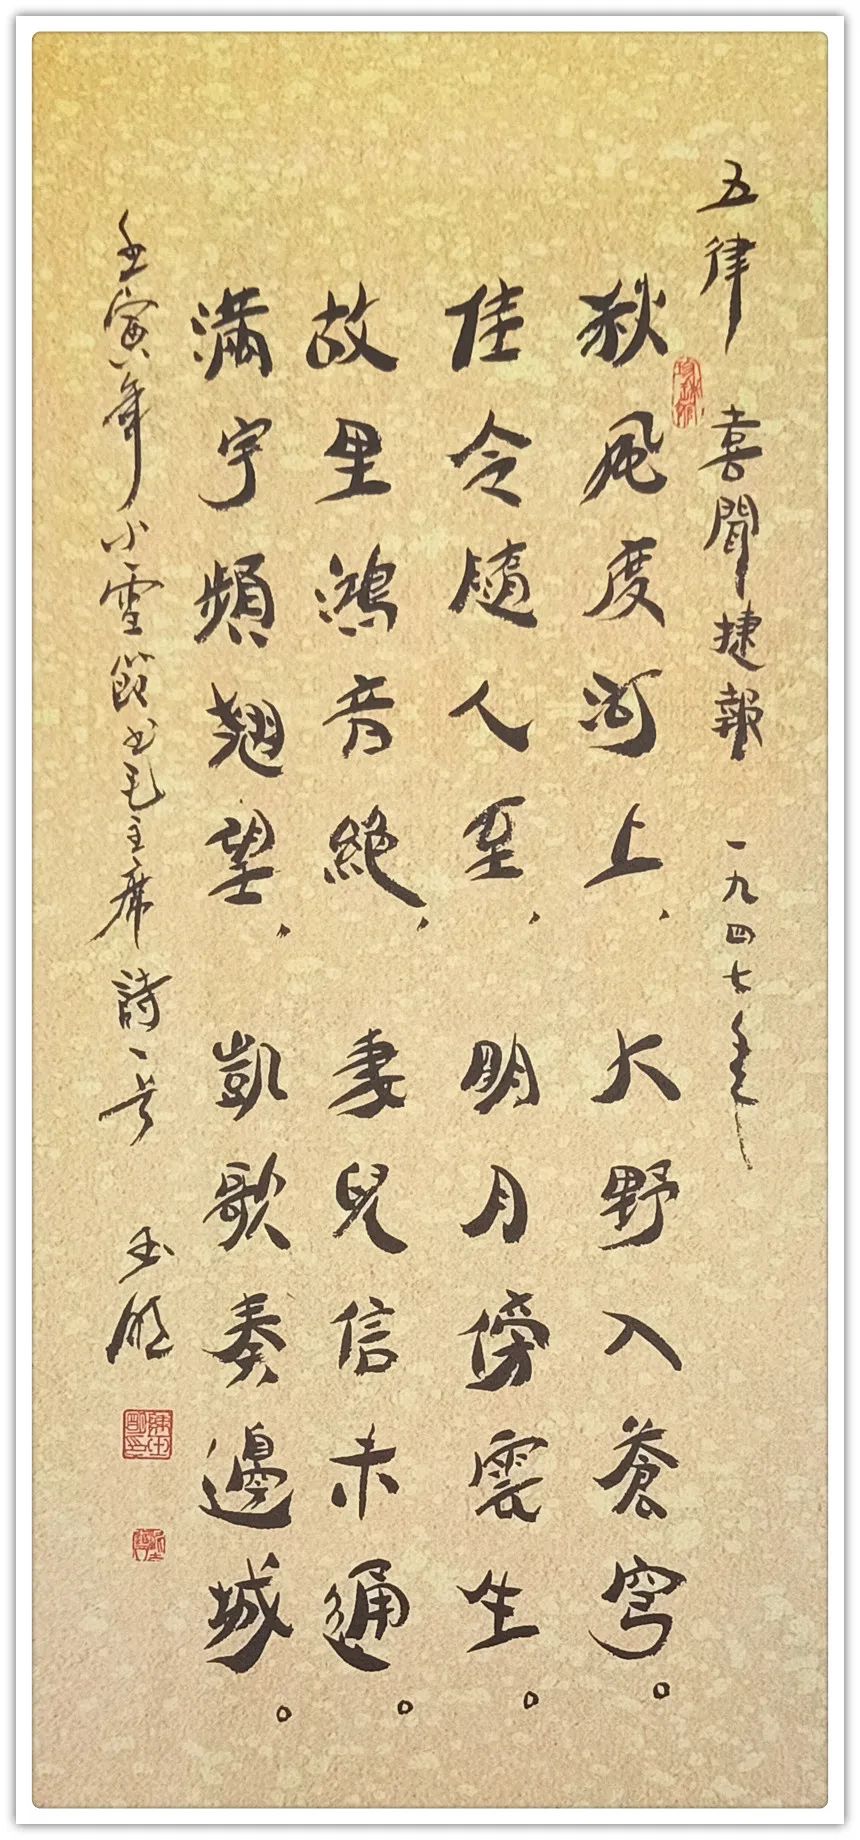 五律 喜聞捷報 一九四七年
秋風度河上，大野入蒼穹。
佳令隨人至，明月傍雲生。
故里鴻音絕，妻兒信未通。
滿宇頻翹望，凱歌奏邊城。
壬寅年小雪節书毛主席詩一首 玉明